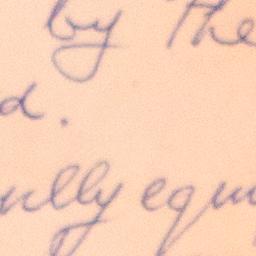 by the
d.
ully equi